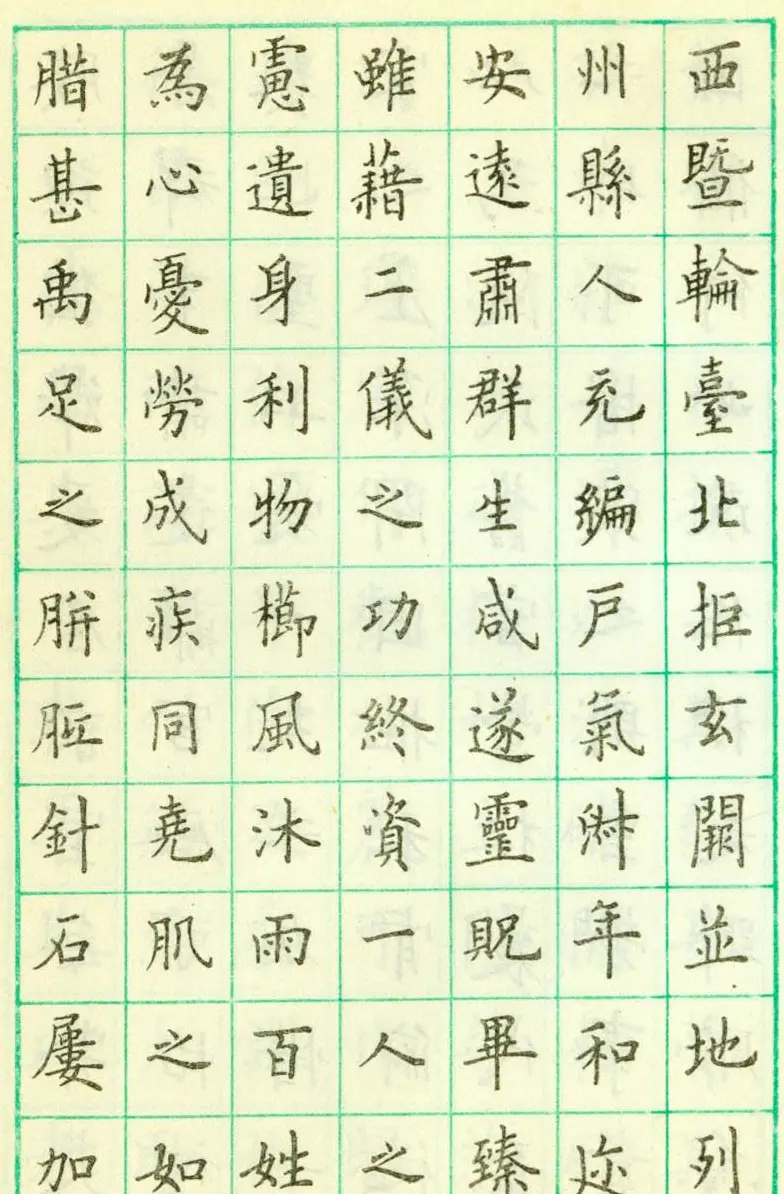 西暨輪臺北拒玄闕並地列
州縣人充編戶氣淑年和迩
安遠肅群生咸遂靈貺畢臻
雖藉二儀之功終資一人之
慮遺身利物櫛風沐雨百姓
為心憂勞成疾同堯肌之如
腊甚禹足之胼胝針石屢加